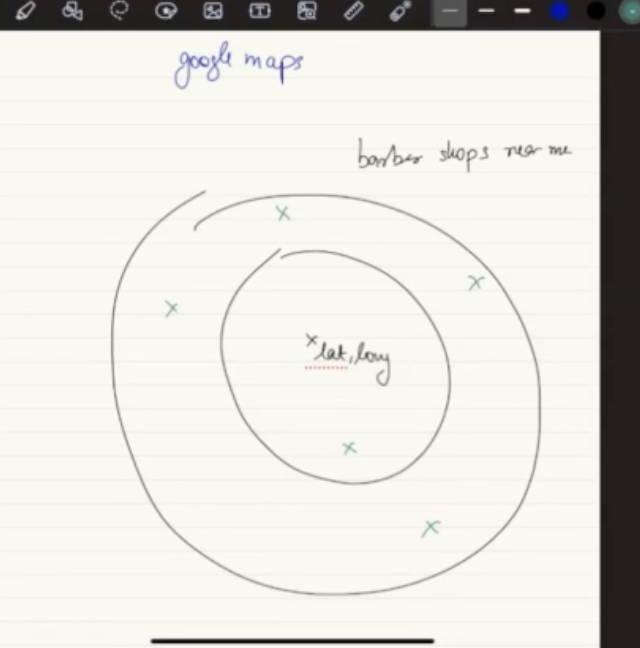 google maps
barber shops near me
x lat, long